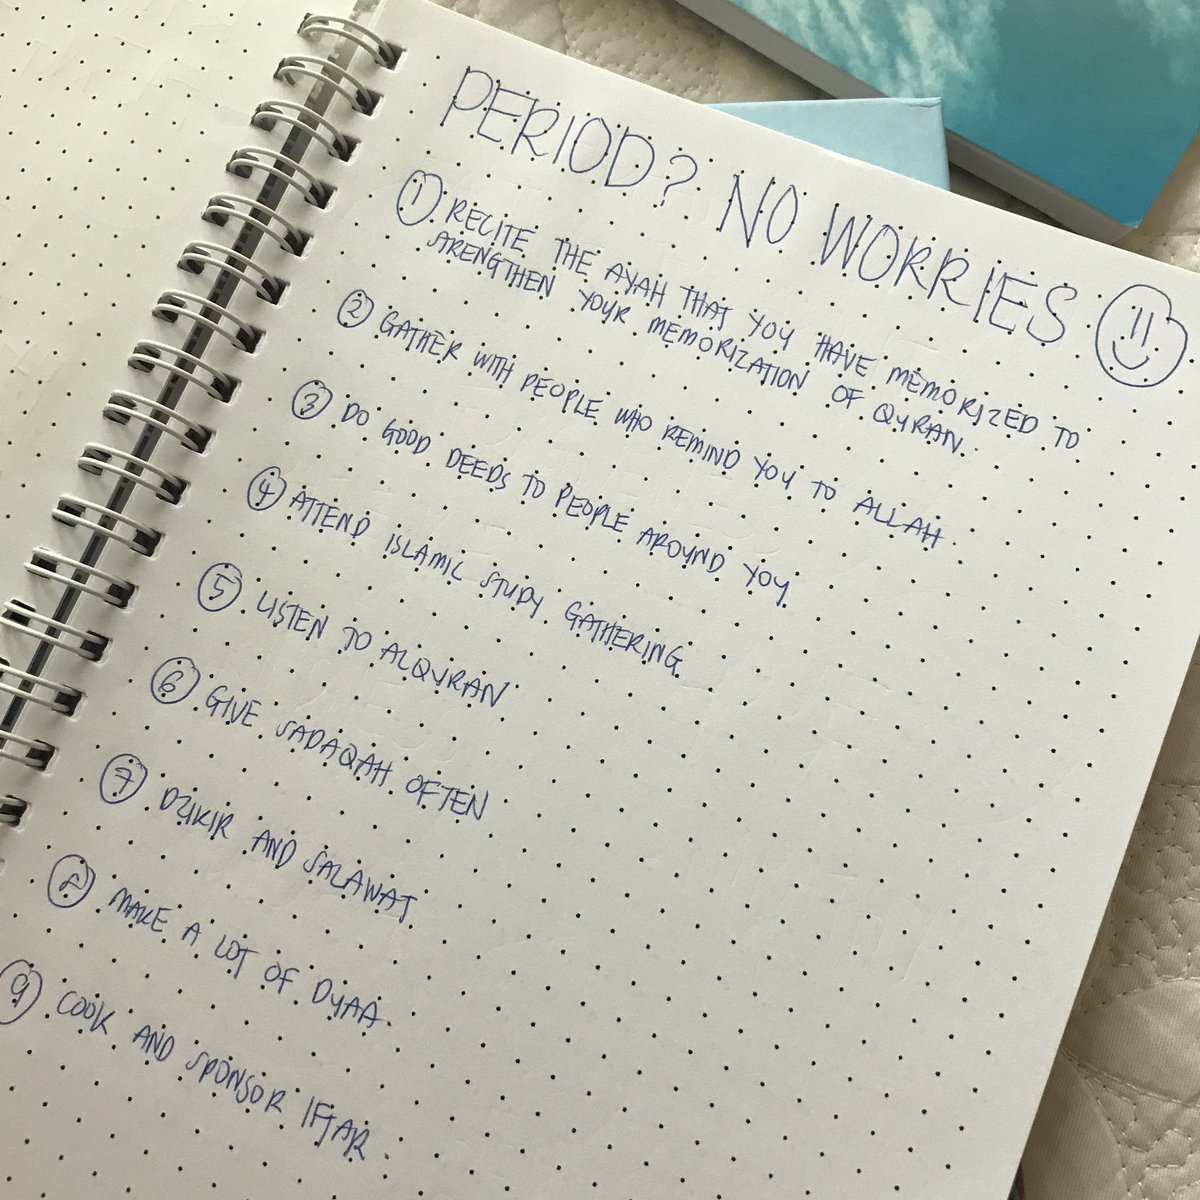 PERIOD? NO WORRIES
1 RECITE THE AYAH THAT YOU HAVE MEMORIZED TO
SRENGTHEN YOUR MEMORIZATION OF QURAN.
2 GATHER WITH PEOPLE WHO REMIND YOU TO ALLAH.
3 DO GOOD DEEDS TO PEOPLE AROUND YOU
4 ATTEND ISLAMIC STUDY GATHERING
5 LISTEN TO ALQURAN
6 GIVE SADAQAH OFTEN
7 DZIKIR AND SALAWAT
8 MAKE A LOT OF DUAA.
9 COOK AND SPONSOR IFTAR.